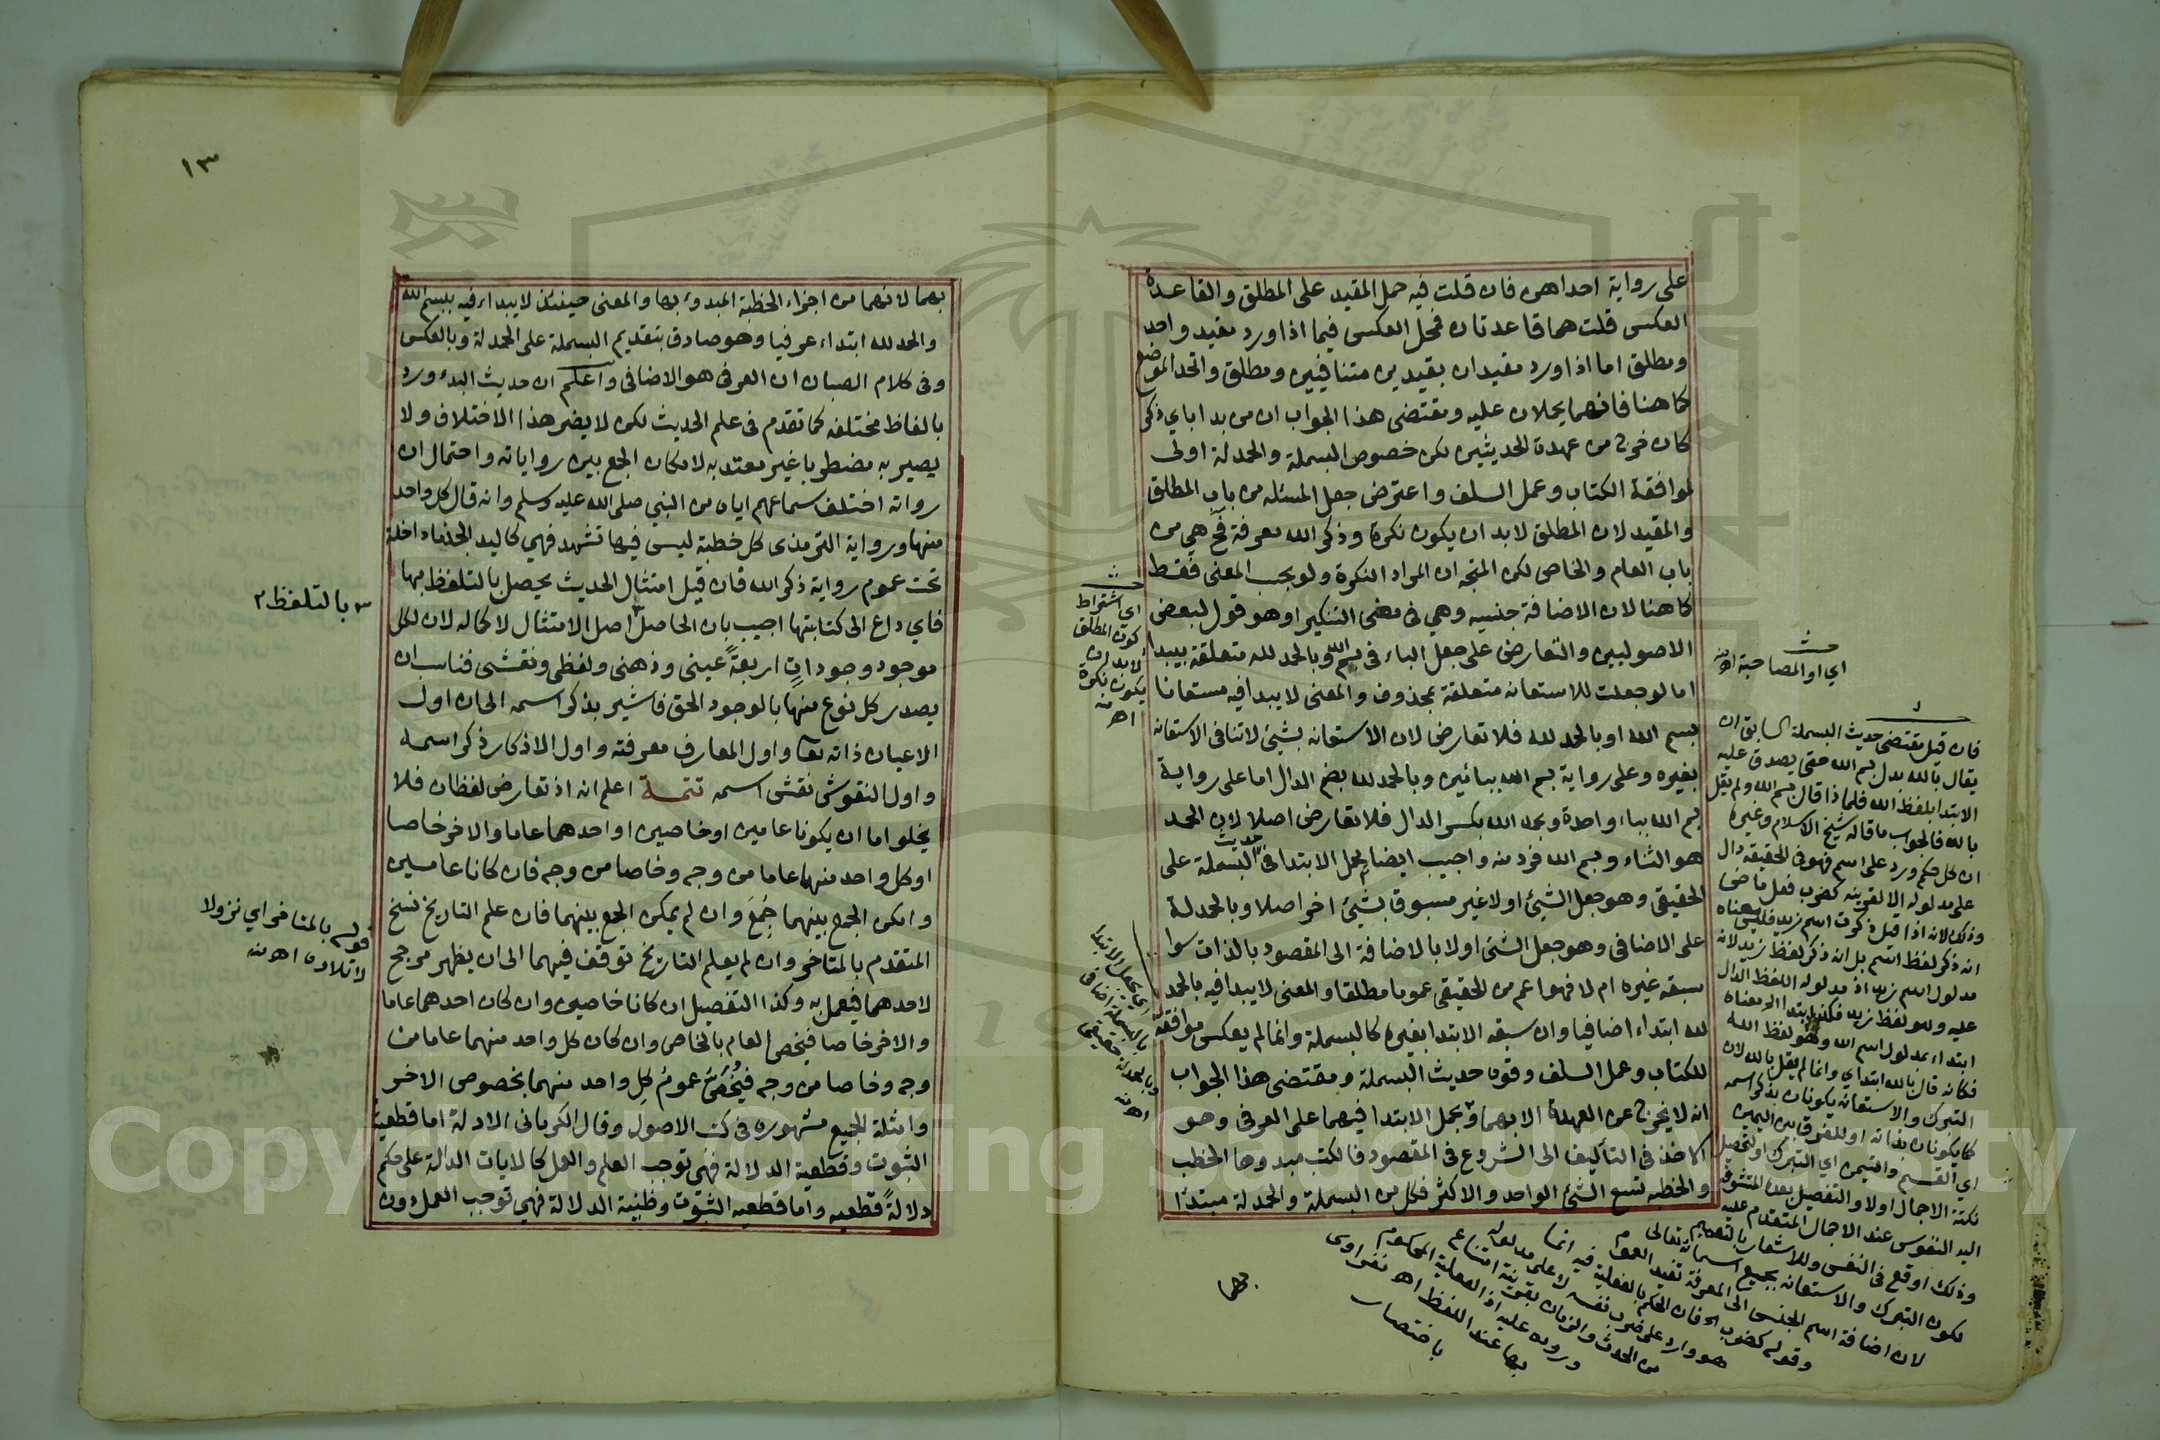 على رواية احداهن فان قلت فيه حمل المقيد على المطلق والقاعدة
العكس قلت هما قاعدتان فمحل العكس فيما اذا ورد مقيد واحد
ومطلق اما اذا ورد مقيدان بقيدين متنافيين ومطلق واتحد الموضع
كما هنا فانهما يحملان عليه ومقتضى هذا الجواب ان من بدا باي ذكر
كان خرج من عهدة الحديثين لكن خصوص البسملة والحمدلة اولى
لموافقة الكتاب وعمل السلف واعترض جعل المسئلة من باب المطلق
والمقيد لان المطلق لابد ان يكون نكرة وذكر الله معرفة فح هي من
باب العام والخاص لكن المتجه ان المراد النكرة ولو بحب المعنى فقط
كما هنا لان الاضافة جنسيه وهي في معنى التنكير او هو قول لبعض
الاصوليين والتعارض على جعل الباء في بسم الله وبالحمد لله متعلقة بيبدا
اما لو جعلت للاستعانه متعلقة بمحذوف والمعنى لا يبدا فيه مستعانا
بسم الله او بالحمد لله فلا تعارض لان الاستعانه بشئ لاتنافى الاستعانه
بغيره وعلى رواية بسم الله ببائين وبالحمد لله بضم الدال اما على رواية
بسم الله بباء واحدة وبحمد الله بكسر الدال فلا تعارض اصلا لان الحمد
هو الثناء وبسم الله فرد منه واجيب ايضا بحمل الابتدا في حديث البسملة على
الحقيقى وهو جعل الشيئ اولا غير مسبوق بشيئ اخر اصلا وبالحمدلة
على الاضافى وهو جعل الشئ اولا بالاضافة الى المقصود بالذات سوا
سبقه غيره ام لا فهو اعم من الحقيقى عموما مطلقا والمعنى لا يبدا فيه بالحمد
لله ابتداء اضافيا وان سبقه الابتدا بغيره كالبسملة وانما لم يعكس موافقة
للكتاب وعمل السلف وقوة حديث البسملة ومقتضى هذا الجواب
انه لا يخرج عن العهدة الا بهما وبحمل الابتدا فيهما على العرفى وهو
الاخذ فى التآليف الى الشروع فى المقصود فالكتب مبدوها الخطب
والخطبه تسع الشئ الواحد والاكثر فكل من البسملة والحمدلة مبتدئا
بهما
اي اشتراط
كون المطلق
لابد ان
يكون نكرة
اهـ منه
اي بحمل الابتدا
بالبسملة
وبالحمدلة
اهـ منه
اي او المصاحبة اهـ منه
فان قيل مقتضى حديث البسملة السابق ان
يقال بالله بدل بسم الله حتى يصدق عليه
الابتدا بلفظ الله فلماذا قال بسم الله ولم يقل
بالله فالجواب ما قاله شيخ الاسلام وغيره
ان كل حكم ورد على اسم فهو فى الحقيقه دال
على مدلوله الا لقرينه كضرب فعل ماضى
وذلك لانه اذا قيل ذكرت اسم زيد فليس معناه
انه ذكر لفظ اسم بل انه ذكر لفظ زيد لان
مدلول اسم زيد اذ مدلوله اللفظ الدال
عليه وهو لفظ زيد فكذا ابتدا الله معناه
ابتداء بمدلول اسم الله وهو لفظ الله
فكانه قال بالله ابتداي وانما لم يقل بالله لان
التبرك والاستعانه يكونان بذكر اسمه
كما يكونان بذاته او للفرق بين اليمين
اي القسم والتيمن اي التبرك او لتحصيل
نكتة الاجمال اولا والتفصيل بعده المتشوقه
اليه النفوس عند الاجمال المتقدم عليه
وذلك اوقع فى النفس وللاشعار بالتعميم
لكون التبرك والاستعانه بجميع اسمائه تعالى
لان اضافة اسم الجنس الى المعرفة تفيد العموم
وقوله كضرب الخ فان الحكم بالفعلية فيه انما
هو وارد على ضرب نفسه لا على مدلوله
من الحدث والزمان بقرينة امتناع
وروده عليه اذ الفعلية المحكوم
بها عند اللفظ اهـ نفراوى
باختصار
١٣
بهما لانهما من اجزاء الخطبة المبدوء بها والمعنى حينئذ لا يبداء فيه ببسم الله
والحمد لله ابتداء عرفيا وهو صادق بتقديم البسملة على الحمدلة وبالعكس
وفى كلام الصبان ان العرفى هو الاضافى واعلم ان حديث البدء ورد
بالفاظ مختلفه كما تقدم فى علم الحديث لكن لا يضر هذا الاختلاف ولا
يصير به مضطربا غير معتد به لامكان الجمع بين رواياته واحتمال ان
رواته اختلف سماعهم اياه من النبي صلى الله عليه وسلم وانه قال كل واحد
منها ورواية الترمذى كل خطبة ليس فيها تشهد فهي كاليد الجذماء داخلة
تحت عموم رواية ذكر الله فان قيل امتثال الحديث يحصل بالتلفظ بها
فاي داع الى كتابتها اجيب بان الحاصل اصل الامتثال لا كماله لان لكل
موجود وجودات اربعة عينى وذهنى ولفظى ونقشى فناسب ان
يصدر كل نوع منها بالوجود الحق فاشير بذكر اسمه الى ان اول
الاعيان ذاته تعا واول المعارف معرفته واول الاذكار ذكر اسمه
واول النقوش نقش اسمه تتمة اعلم انه اذ تعارض لفظان فلا
يخلوا اما ان يكونا عامين او خاصين او احدهما عاما والاخر خاصا
او كل واحد منهما عاما من وجه وخاصا من وجه فان كانا عامين
وامكن الجمع بينهما جُمِعَ وان لم يمكن الجمع بينهما فان علم التاريخ نسخ
المتقدم بالمتاخر وان لم يعلم التاريخ توقف فيهما الى ان يظهر مرجح
لاحدهما فيعمل به وكذا التفصيل ان كانا خاصين وان كان احدهما عاما
والاخر خاصا فيخص العام بالخاص وان كان كل واحد منهما عاما من
وجه وخاصا من وجه فيُخَصُّ عمومُ كل واحد منهما بخصوص الاخر
وامثلة للجميع مشهوره فى كتب الاصول وقال الكرمانى الادلة اما قطعية
الثبوت وقطعية الدلالة فهى توجب العلم والعمل كالايات الدالة على حكم
دلالةً قطعيه واما قطعيه الثبوت وظنية الدلالة فهي توجب العمل دون
بالتلفظ
قوله بالمتاخر اي نزولا
لا تلاوة اهـ منه